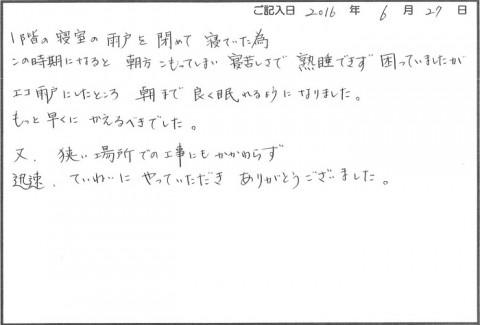 ご記入日 2016 年 6 月 27 日
1階の寝室の雨戸を閉めて寝ていた為
この時期になると 朝方こもってしまい 寝苦しさで 熟睡できず 困っていましたが
エコ雨戸にしたところ 朝まで良く眠れるようになりました。
もっと早くに かえるべきでした。
又、狭い場所での工事にもかかわらず
迅速、ていねいに やっていただき ありがとうございました。